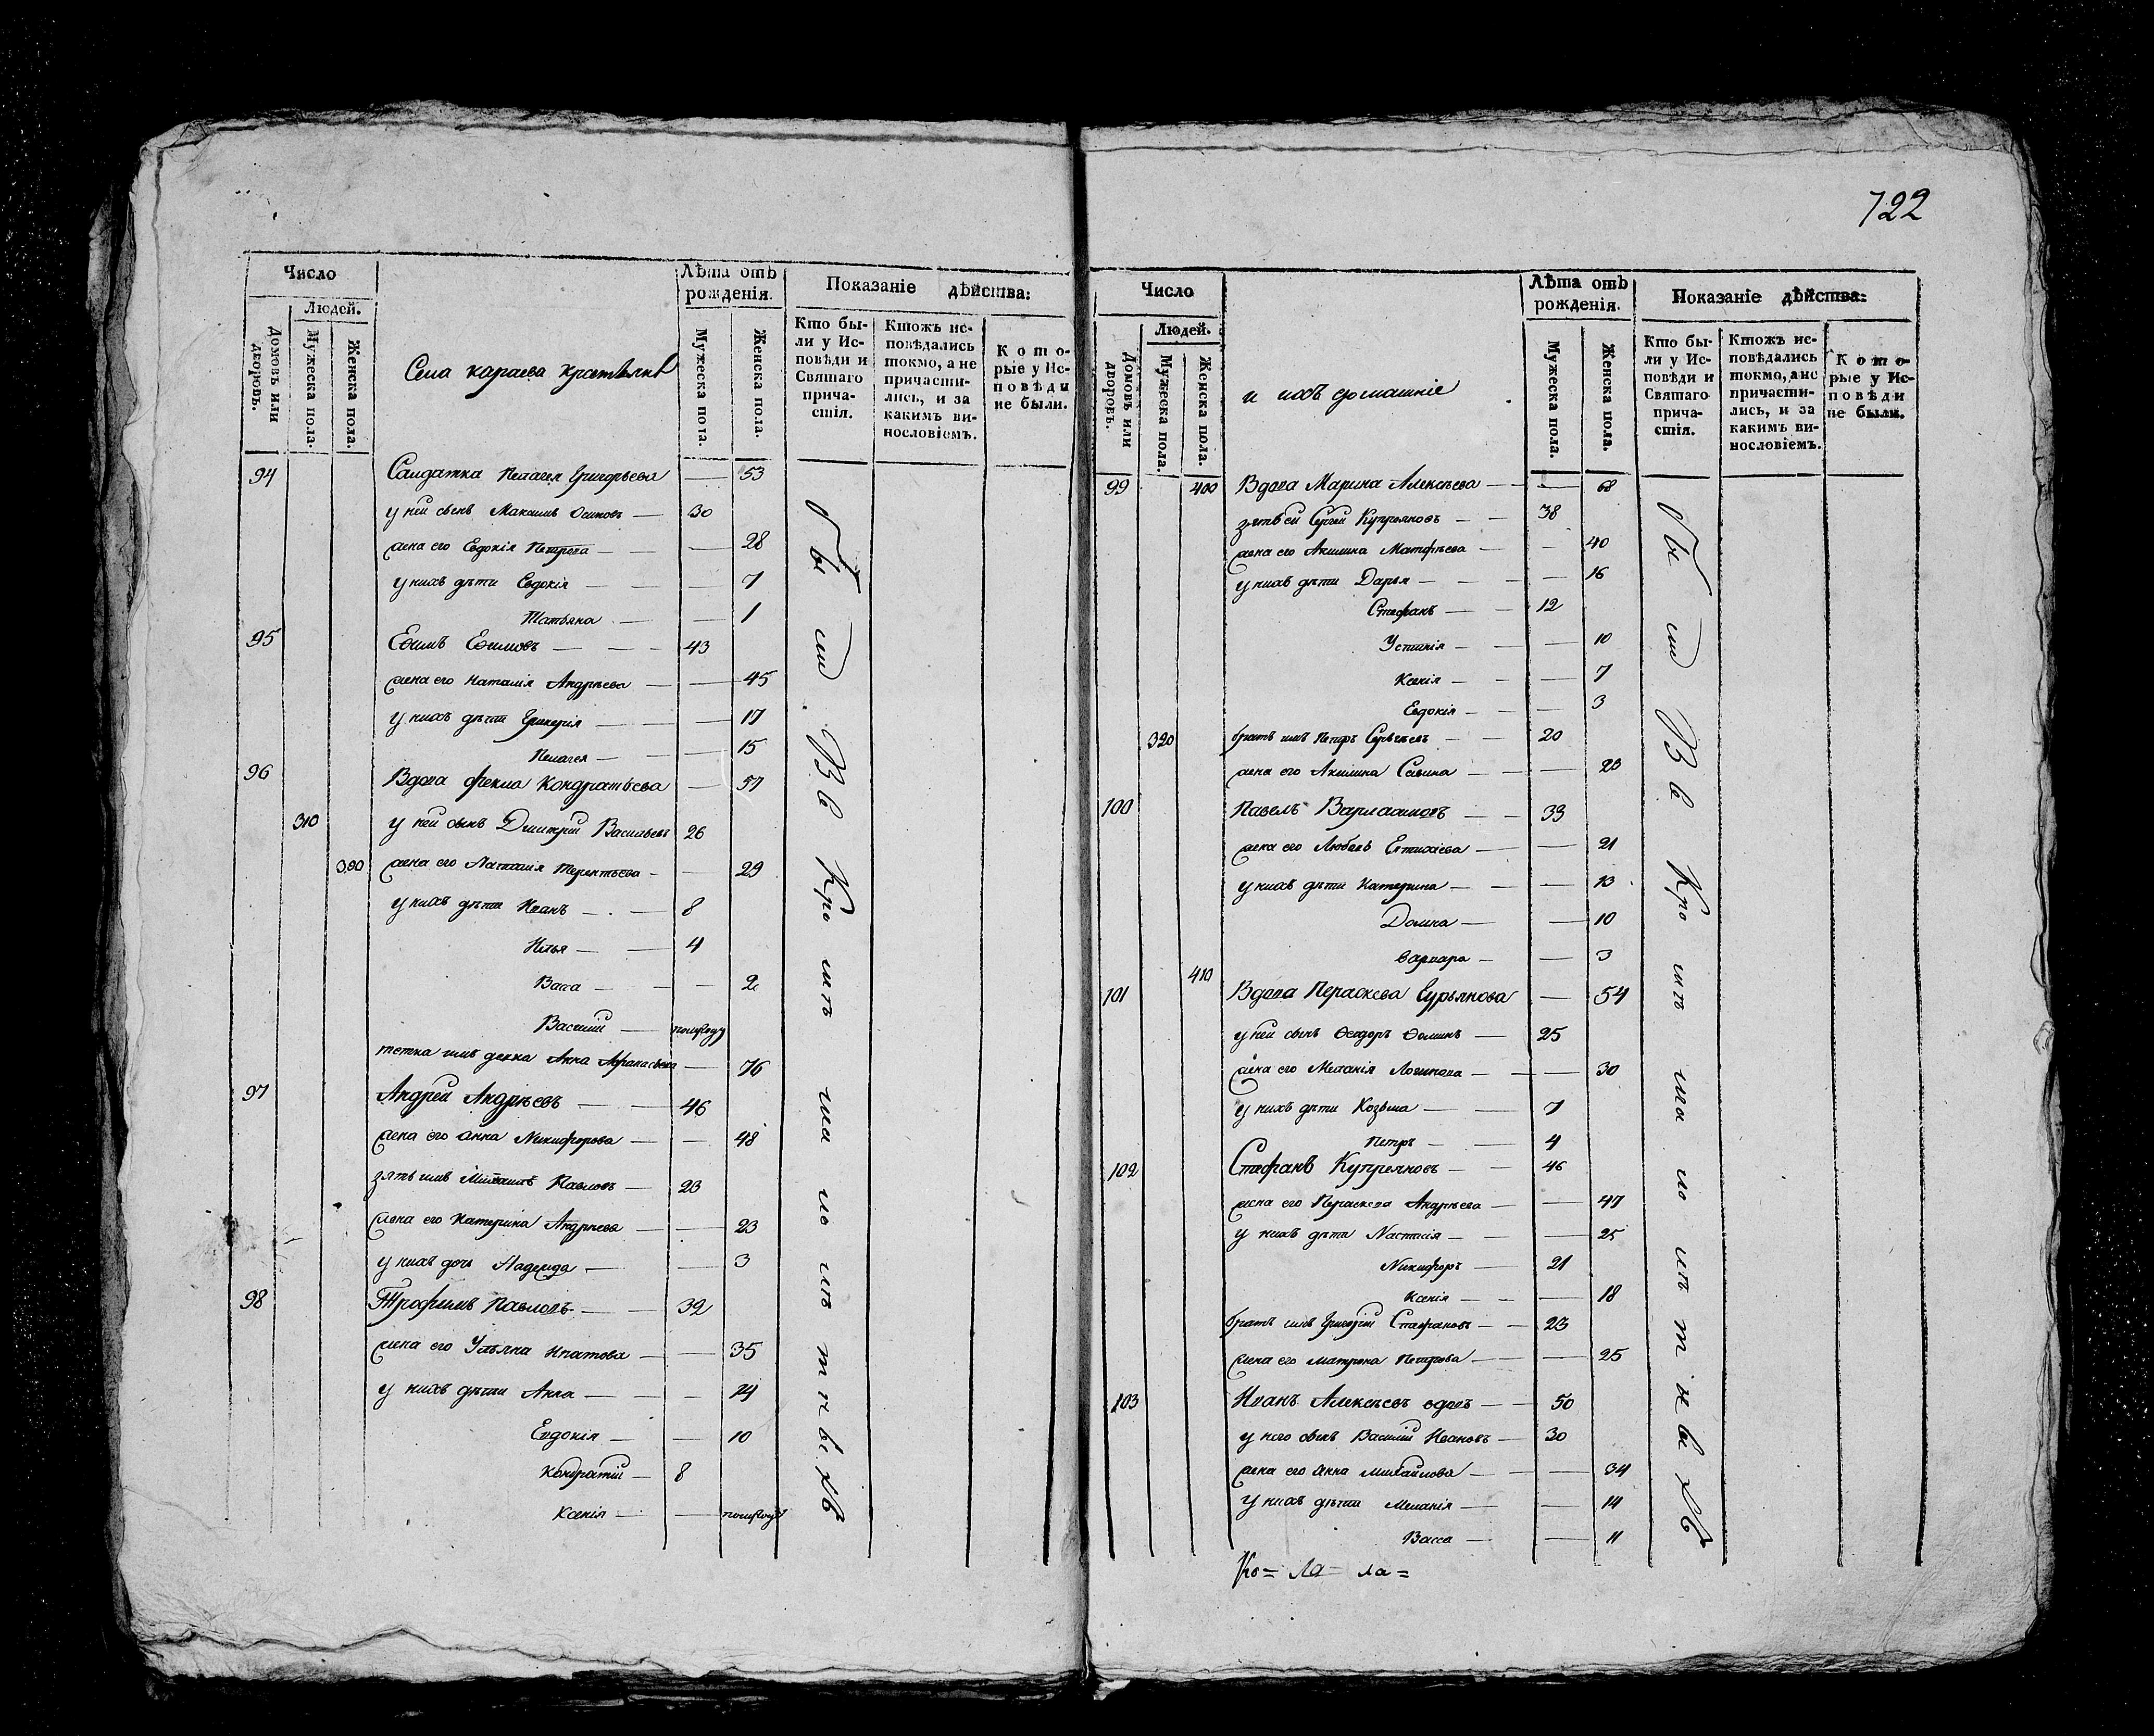 722
Число
Людей.
Домовъ или дворовъ.
Мужеска пола.
Женска пола.
Села караева крестьяне
Лѣта отъ рожденія.
Мужеска пола.
Женска пола.
Показаніе дѣйства:
Кто бы-
ли у Ис-
повѣди и
Святаго
прича-
стія.
Ктожъ ис-
повѣдались
токмо, а не
причасти-
лись, и за
какимъ ви-
нословіемъ.
Кото-
рые у Ис-
повѣди
не были.
94 Салдатка Пелагея Григорьева — 53
у ней сынъ Максимъ Осиповъ — 30
жена его Евдокія Петрова — — 28
у нихъ дѣти Евдокія — — 7
Татьяна — — 1
95 Ефимъ Ефимовъ — — — 43
жена его Наталія Андрѣева — — 45
у нихъ дѣти Гликерія — — 17
Пелагея — — 15
96 Вдова Фекла Кондратьева — 57
310 у ней сынъ Дмитрій Васильевъ 26
390 жена его Наталія Терентьева — — 29
у нихъ дѣти Иванъ — — 8
Илья — — 4
Васса — — 2
Василій — полугоду
тетка имъ девка Анна Афанасьева — 76
97 Андрей Андрѣевъ — — 46
жена его Анна Никифорова — — 48
зять имъ Михаилъ Павловъ — 23
жена его Катерина Андрѣева — — 23
у нихъ дочь Надежда — — 3
98 Трофимъ Павловъ — — 32
жена его Ульяна Ипатова — — 35
у нихъ дѣти Анна — — — 14
Евдокія — — 10
Кондратій — 8
Ксенія — — полугоду
Бы ли Всѣ Кро мѣ ма ло лѣ т н ы хъ
Число
Людей.
Домовъ или дворовъ.
Мужеска пола.
Женска пола.
и ихъ домашніе
Лѣта отъ рожденія.
Мужеска пола.
Женска пола.
Показаніе дѣйства:
Кто бы-
ли у Ис-
повѣди и
Святаго
прича-
стія.
Ктожъ ис-
повѣдались
токмо, а не
причасти-
лись, и за
какимъ ви-
нословіемъ.
Кото-
рые у Ис-
повѣди
не были.
99 400 Вдова Марина Алексѣева — — 68
зять ей Сергей Купрѣяновъ — — 38
жена его Акилина Матфѣева — — 40
у нихъ дѣти Дарья — — — 16
Стефанъ — — 12
Устинія — — 10
Ксенія — — 7
Евдокія — — 3
320 братъ имъ Петръ Сергѣевъ — — 20
жена его Акилина Савина — — 23
100 Павелъ Варлаамовъ — — 33
жена его Любовь Евтихіева — — 21
у нихъ дѣти Катерина — — 13
Домна — — 10
Варвара — — 3
410
101 Вдова Пераскева Гурьянова — 54
у ней сынъ Ѳеодоръ Ѳоминъ — 25
жена его Меланія Логинова — — 30
у нихъ дѣти Козьма — — 7
Петръ — — 4
102 Стефанъ Купреяновъ — — 46
жена его Пераскева Андрѣева — — 47
у нихъ дѣти Настасія — — 25
Никифоръ — — 21
Ксенія — — — 18
братъ имъ Григорій Стефановъ — — 23
жена его Матрона Петрова — — 25
103 Иванъ Алексѣевъ вдовъ — — 50
у него сынъ Василій Ивановъ — 30
жена его Анна Михайлова — — — 34
у нихъ дѣти Меланія — — 14
Васса — — 11
Бы ли Всѣ Кро мѣ ма ло лѣ т н ы хъ
Ко= Ла= ла=